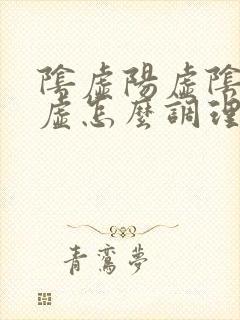 陰虛陽虛陰
虛怎麼調理
青鸞夢